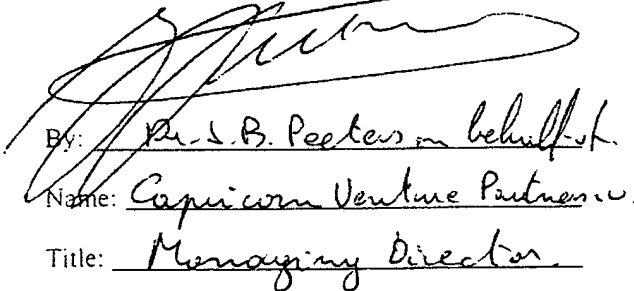 By: Dr. J. B. Peeters on behalf of.
Name: Capricorn Venture Partners n.v.
Title: Managing Director.